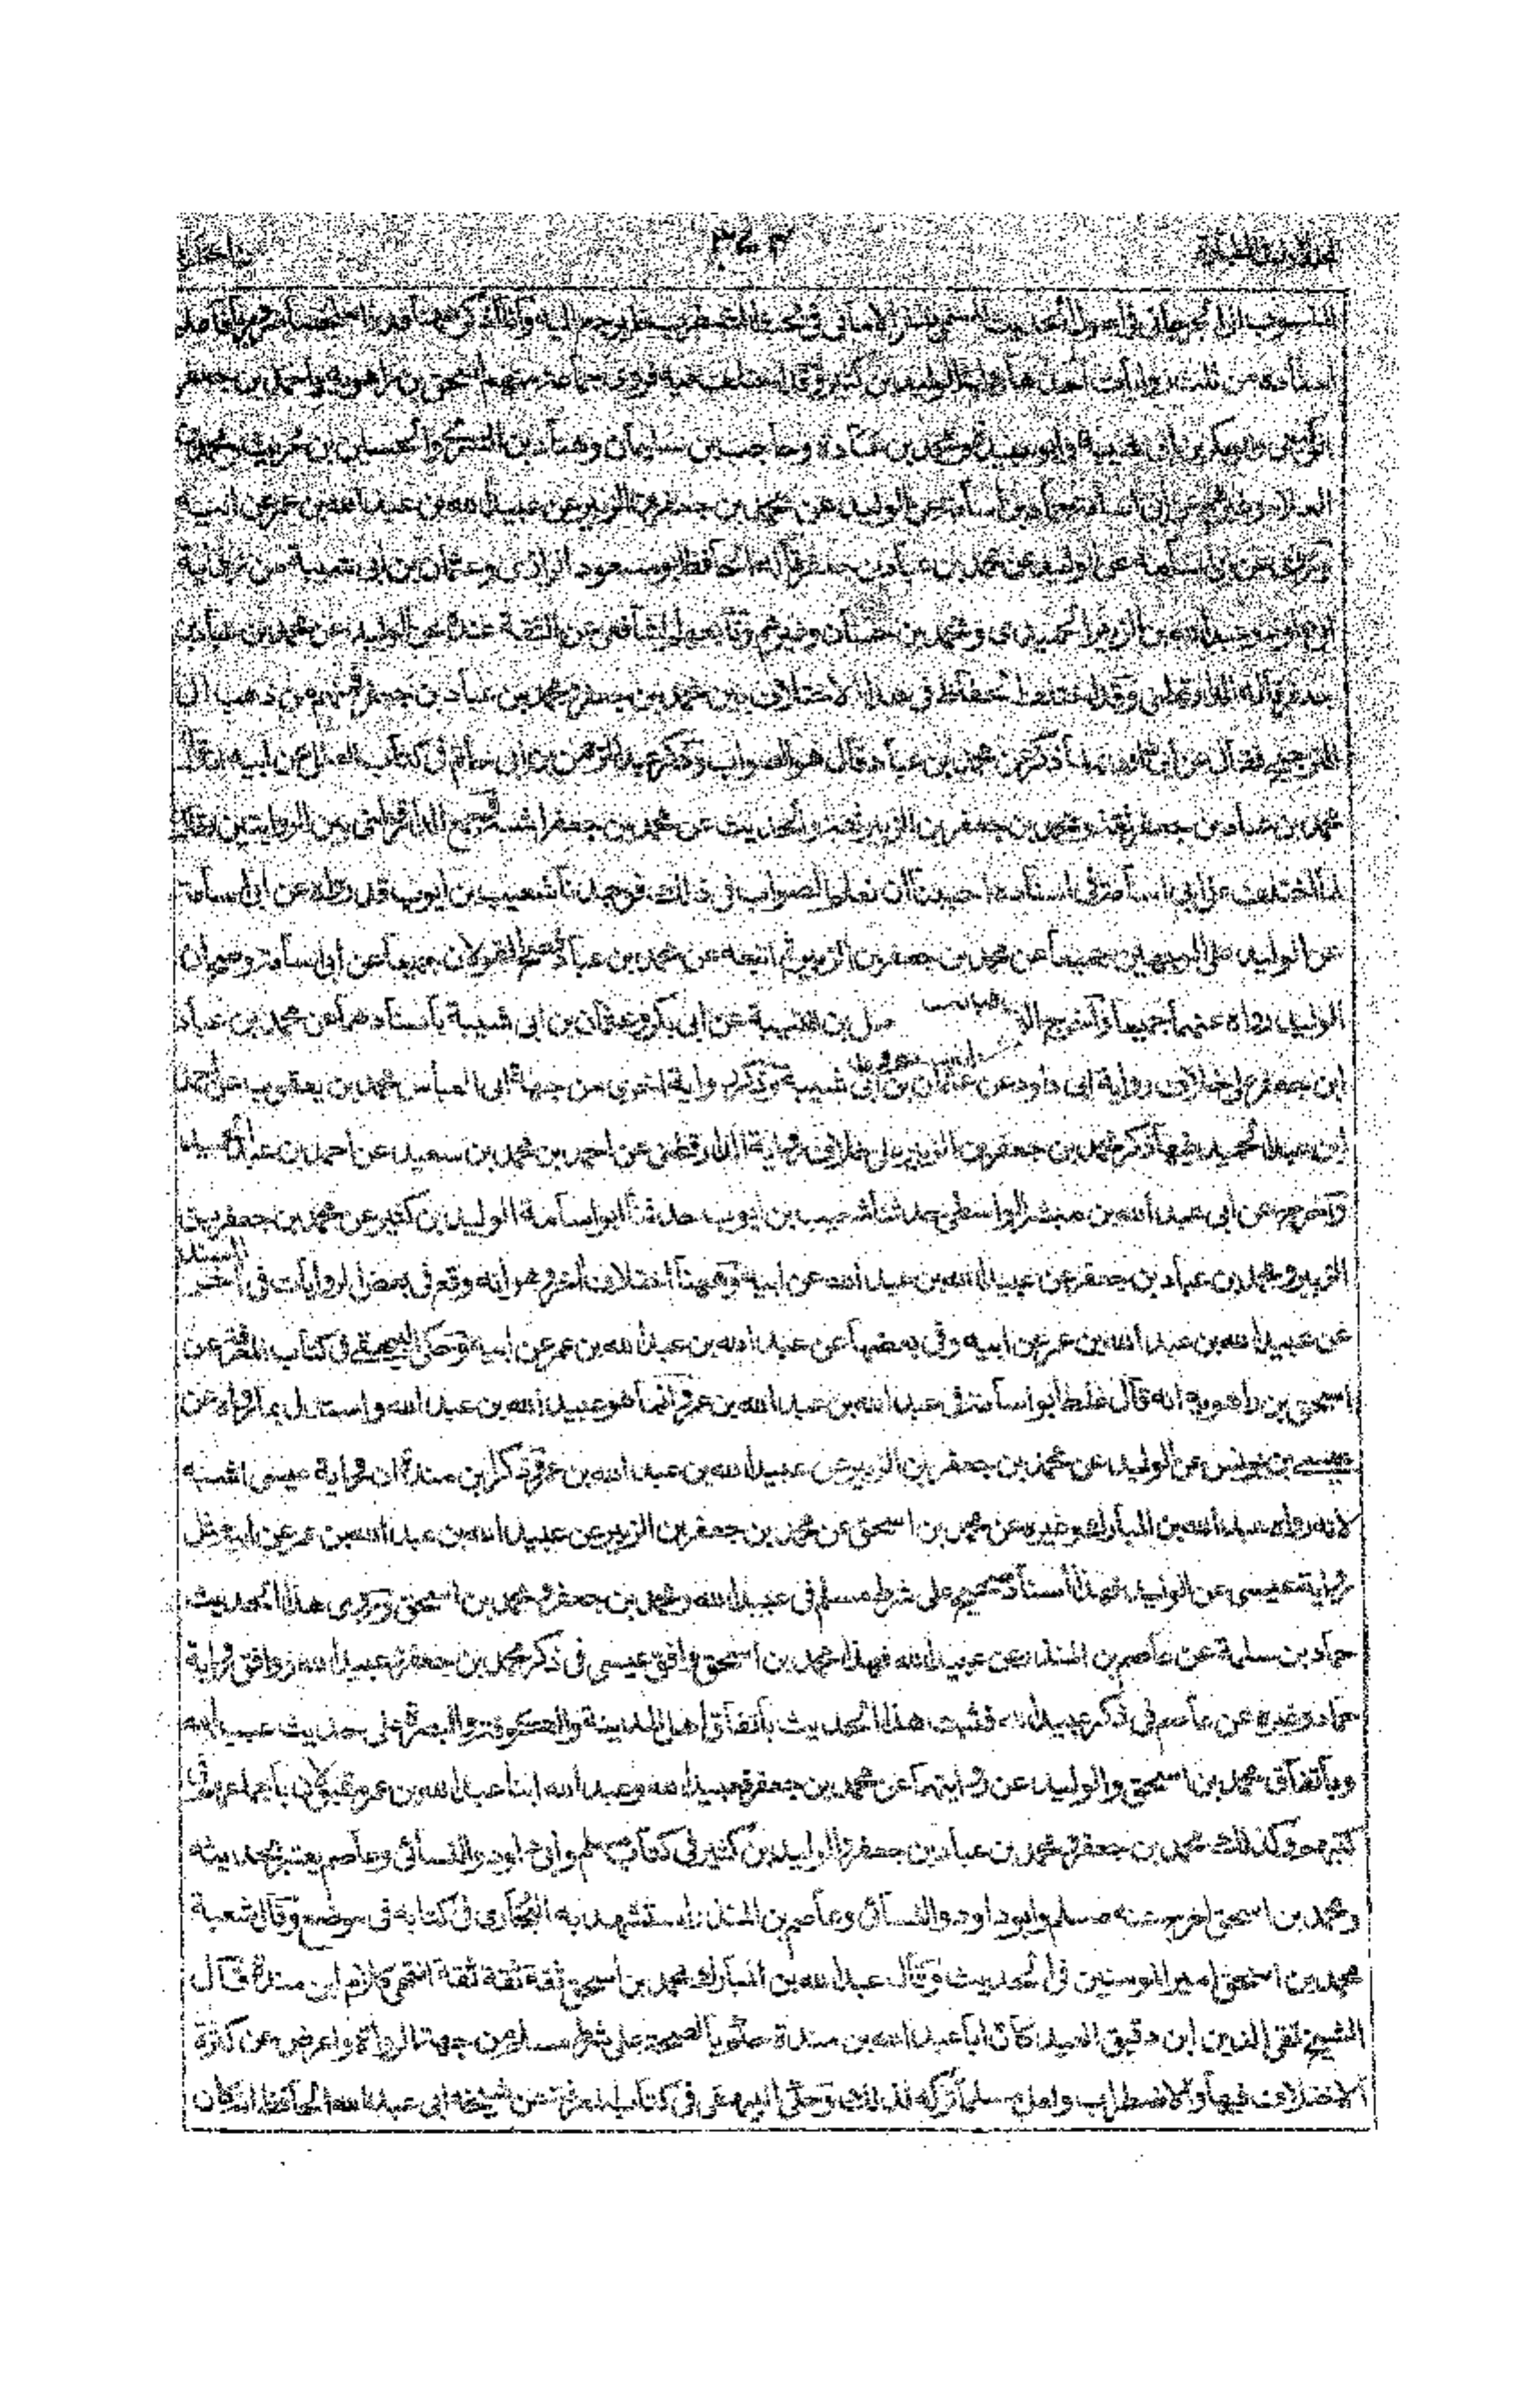 ٣٤٣
المنسوب الى الجرجاني في اصول الحديث المسمى بظفر الاماني في بحث المضطرب
اسناده من ثلث روايات احدها رواية الوليد بن كثير وقد اختلف فيه فروى جماعة منهم اسحق بن راهويه واحمد بن جعفر
الوكيعي وابو بكر بن ابي شيبة وابو عبيدة ومحمد بن عبادة وحاجب بن سليمان وهناد بن السري والحسين بن حريث
العلاء عن ابي اسامة حماد بن اسامة عن الوليد عن محمد بن جعفر بن الزبير عن عبيد الله بن عبد الله بن عمر عن ابيه
وروى عن ابي اسامة عن الوليد عن محمد بن عباد بن جعفر قاله الحافظ ابو مسعود الرازي وعثمان بن ابي شيبة من رواية
ابي داود وعبد الله بن الزبير الحميدي ومحمد بن حسان وغيرهم وتابعهم الشافعي عن الثقة عنده عن الوليد عن محمد بن عباد بن
جعفر قاله الدارقطني وقد اختلف الحفاظ في هذا الاختلاف بين محمد بن جعفر ومحمد بن عباد بن جعفر فمنهم من ذهب الى
الترجيح فقال عن ابي داود لما ذكر عن محمد بن عباد قال هو الصواب وذكر عبد الرحمن بن ابي حاتم في كتاب العلل عن ابيه قال
محمد بن عباد بن جعفر ثقة ومحمد بن جعفر بن الزبير ثقة والحديث عن محمد بن جعفر اشبه وجمع الدارقطني بين الروايتين فقال
لما اختلف على ابي اسامة في اسناده احببنا ان نعلم الصواب في ذلك فوجدنا شعيب بن ايوب قد رواه عن ابي اسامة
عن الوليد على الوجهين جميعا عن محمد بن جعفر بن الزبير ثم اتبعه عن محمد بن عباد فصح القولان جميعا عن ابي اسامة وصح ان
الوليد رواه عنهما جميعا واخرج عن ابي بكر وعثمان بن ابي شيبة باسنادهما عن محمد بن عباد
ابن جعفر على خلاف رواية ابي داود عن عثمان بن ابي شيبة وذكر رواية اخرى من جهة ابي العباس محمد بن يعقوب عن احمد
ابن عبد الحميد فيها ذكر محمد بن جعفر بن الزبير على خلاف رواية الدارقطني عن احمد بن محمد بن سعيد عن احمد بن عبد الحميد
واخرجه عن ابي عبد الله بن مبشر الواسطي حدثنا شعيب بن ايوب حدثنا ابو اسامة الوليد بن كثير عن محمد بن جعفر بن
الزبير ومحمد بن عباد بن جعفر عن عبيد الله بن عبد الله عن ابيه وههنا اختلاف اخر وهو انه وقع في بعض الروايات في اخر السند
عن عبيد الله بن عبد الله بن عمر عن ابيه وفي بعضها عن عبد الله بن عبد الله بن عمر عن ابيه وحكى البيهقي في كتاب المعرفة عن
اسحق بن راهويه انه قال غلط ابو اسامة في عبد الله بن عبد الله بن عمر وانما هو عبيد الله بن عبد الله واستدل بما رواه عن
عيسى بن يونس عن الوليد عن محمد بن جعفر بن الزبير عن عبيد الله بن عبد الله بن عمر وذكر ابن منده ان رواية عيسى اشبه
لانه رواه عبد الله بن المبارك وغيره عن محمد بن اسحق عن محمد بن جعفر بن الزبير عن عبيد الله بن عبد الله بن عمر عن ابيه مثل
رواية عيسى عن الوليد فهذا اسناد صحيح على شرط مسلم في عبيد الله ومحمد بن جعفر ومحمد بن اسحق وروى هذا الحديث
حماد بن سلمة عن عاصم بن المنذر عن عبيد الله فهذا محمد بن اسحق وافق عيسى في ذكر محمد بن جعفر وعبيد الله ووافق رواية
حماد وغيره عن عاصم في ذكر عبيد الله فثبت هذا الحديث باتفاق اهل المدينة والكوفة والبصرة على حديث عبيد الله
وباتفاق محمد بن اسحق والوليد عن روايتهما عن محمد بن جعفر وعبيد الله وعبد الله ابنا عبد الله بن عمر مقبولان باجماع
كتبهم وكذلك محمد بن جعفر ومحمد بن عباد بن جعفر والوليد بن كثير في كتاب مسلم وابي داود والنسائي وعاصم يعتبر بحديثه
ومحمد بن اسحق اخرج عنه مسلم وابو داود والنسائي وعاصم بن المنذر استشهد به البخاري في كتابه في موضع وقال شعبة
محمد بن اسحق امير المؤمنين في الحديث وقال عبد الله بن المبارك محمد بن اسحق ثقة ثقة ثقة انتهى كلام ابن منده قال
الشيخ تقي الدين ابن دقيق العيد كان ابا عبد الله بن منده حكم بالصحة على شرط مسلم من جهة الرواة واعرض عن كثرة
الاختلاف فيها والاضطراب ولعل مسلما تركه لذلك وحكى البيهقي في كتاب المعرفة عن شيخه ابي عبد الله الحافظ انه كان